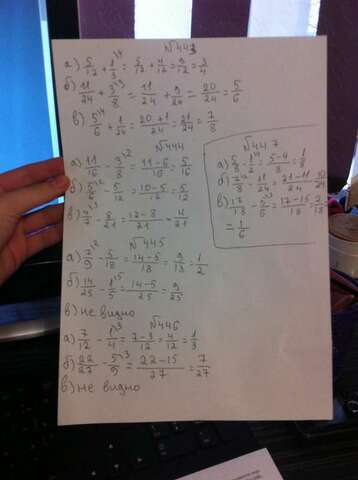 №443
а) 5/12 + 1/3^4 = 5/12 + 4/12 = 9/12 = 3/4
б) 11/24 + 3/8^3 = 11/24 + 9/24 = 20/24 = 5/6
в) 5/6^4 + 1/24 = 20+1/24 = 21/24 = 7/8
№444
а) 11/16 - 3/8^2 = 11-6/16 = 5/16
б) 5/6^2 - 5/12 = 10-5/12 = 5/12
в) 4/7^3 - 8/21 = 12-8/21 = 4/21
№445
а) 7/9^2 - 5/18 = 14-5/18 = 9/18 = 1/2
б) 14/25 - 1/5^5 = 14-5/25 = 9/25
в) не видно
№446
а) 7/12 - 1/4^3 = 7-3/12 = 4/12 = 1/3
б) 22/27 - 5/9^3 = 22-15/27 = 7/27
в) не видно
№447
а) 5/8 - 1/2^4 = 5-4/8 = 1/8
б) 7/8^3 - 11/24 = 21-11/24
в) 17/18 - 5/6^3 = 17-15/18 = 2/18
= 1/6